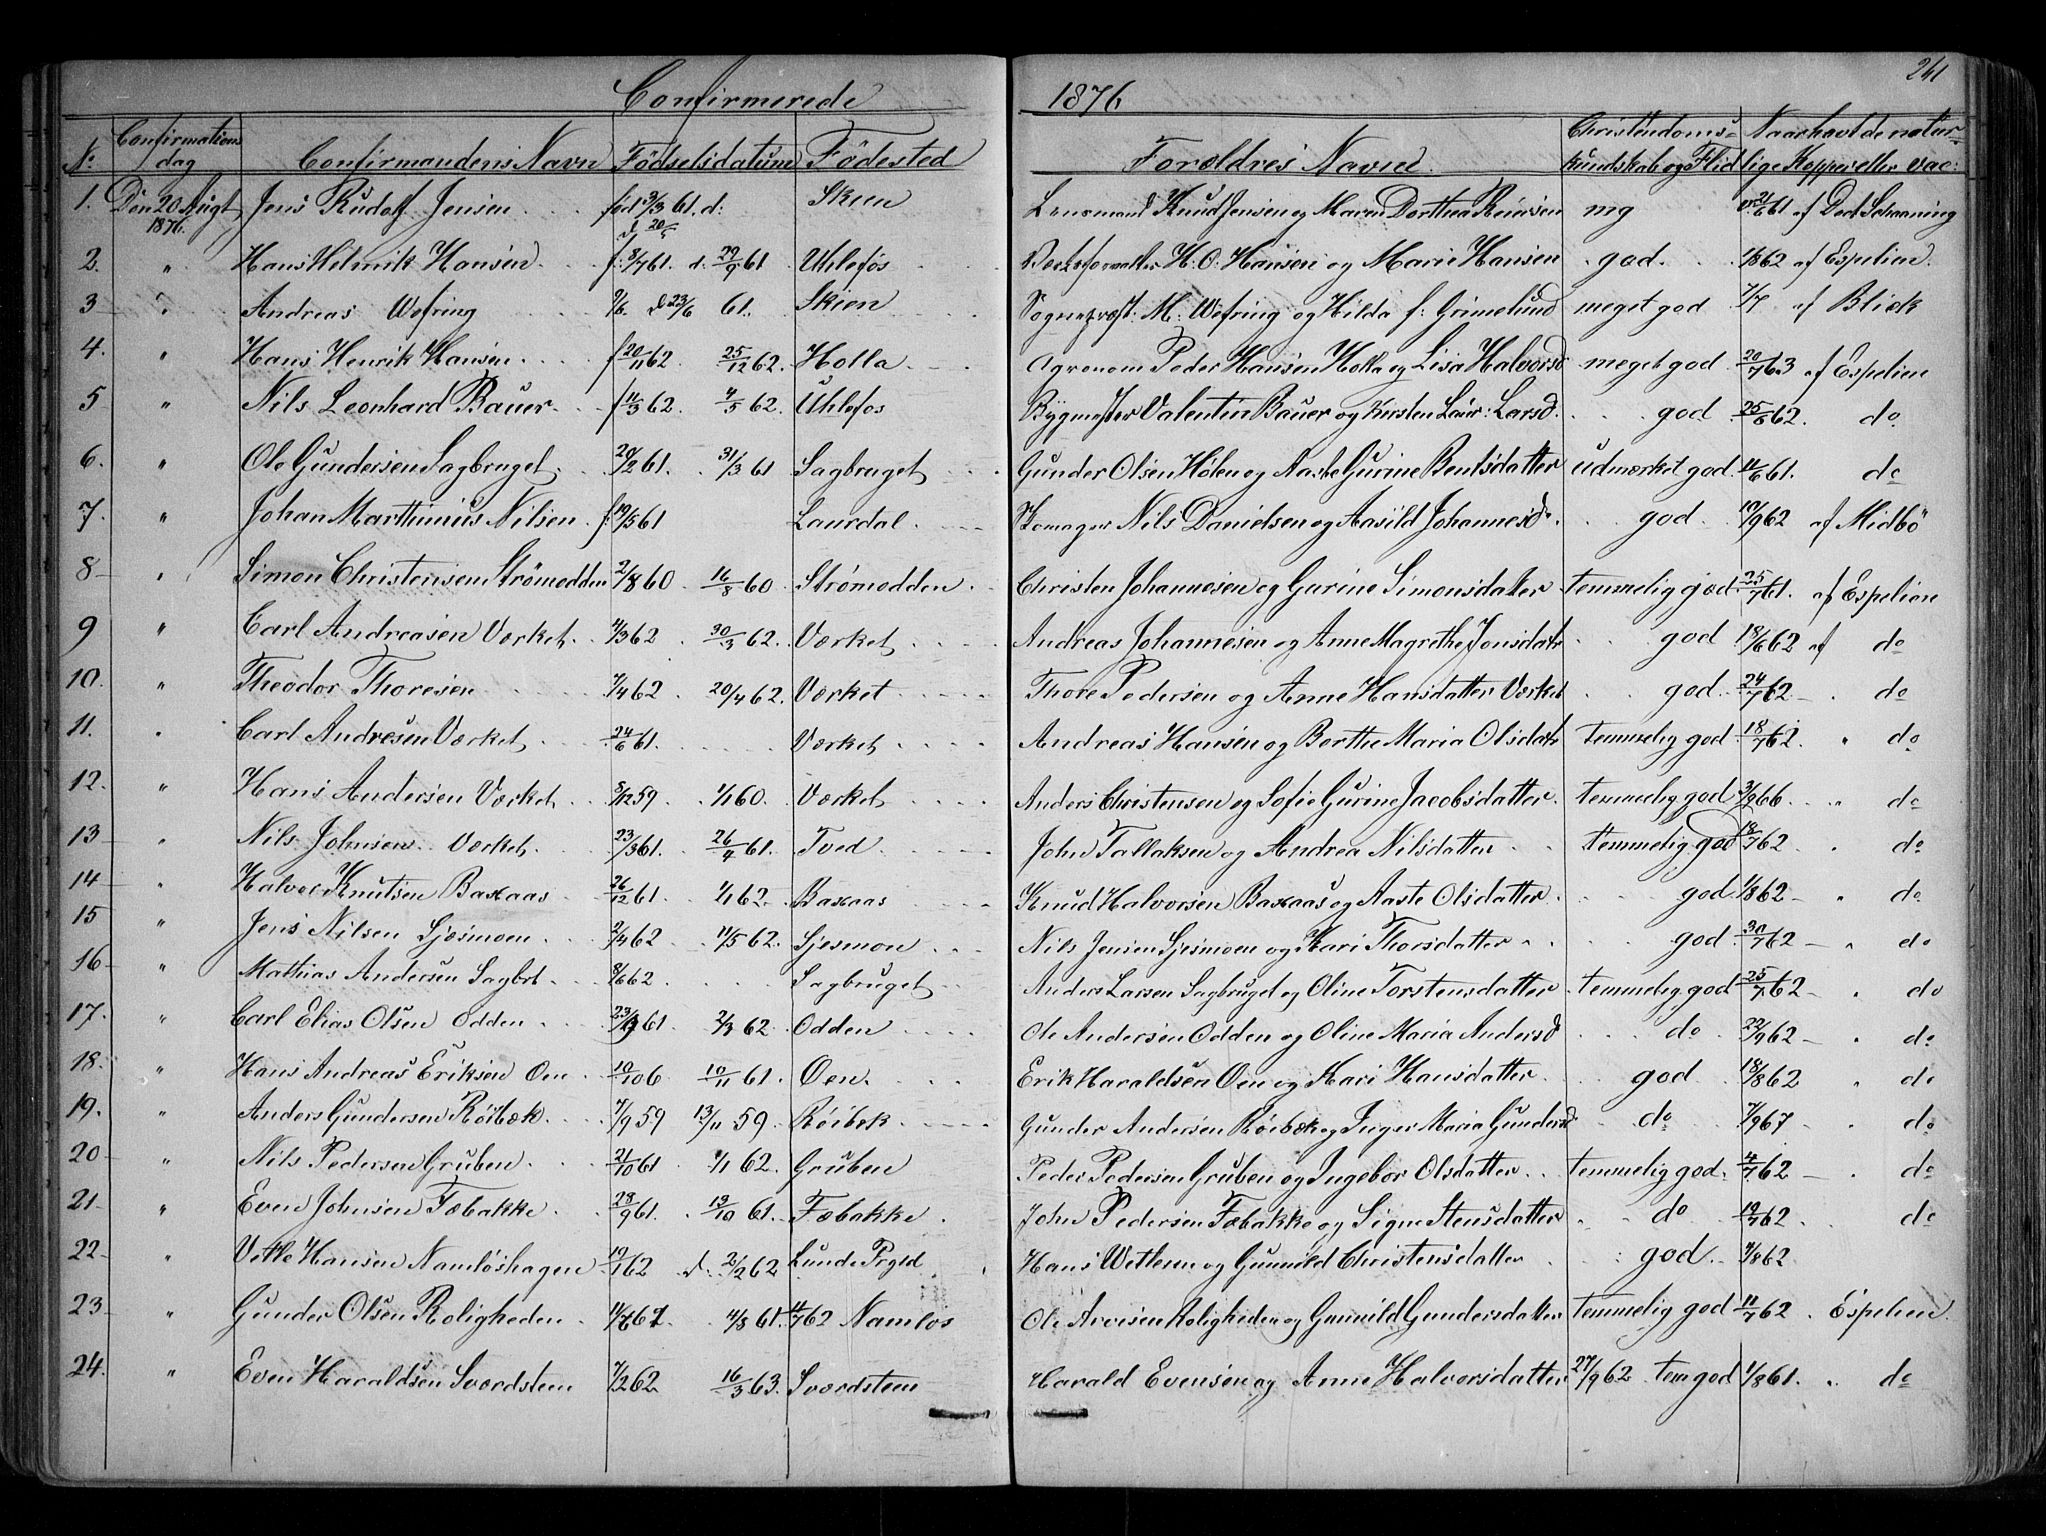 241
Confirmerede 1876
No Confirmations dag Confirmandens Navn Fødselsdatum Födested Forældres Navne Christendoms- kundskab og Flid Naar havt de natur- lige Kopper eller vac:
1. Den 20 Augt 1876. Jens Rudolf Jensen født 3/3 61. d: Skien Lensmand Knud Jensen og Maren Dorthea Reiersen mg 61 af Dod Schaaning
2. " Hans Hilmik Hansen f: 3/7 61. d: 29/9 61 Uhlefos H. O. Hansen og Marie Hansen god. 1862 af Espelien.
3 " Andreas Wefring 9/6. d 23/6 61. Skien Sognepræst M: Wefring og Hilda f: Grimelund meget god 7/7 af Blick
4. " Hans Henrik Hansen f 20/11 62. 25/12 62. Holla Agronom Peder Hansen Holla og Lisa Halvorsd meget god 20/7 63 af Espelien
5 " Nils Leonhard Bauer f 11/3 62. 4/5 62. Uhlefos Bygmester Valentin Bauer og Kirsten Laur: Larsd. god 25/6 62. do
6. " Ole Gundersen Sagbruget 20/2 61. 31/3 61 Sagbruget Gunder Olsen Holen og Aaste Gurine Bentsdatter udmærket god 11/6 61. do
7. " Johan Marthinius Nilsen f: 19/5 61 Laurdal Nils Danielsen og Aasild Johannesd. god 19/9 62 af Midbö
8 " Simon Christensen Strömodden 2/8 60 16/8 60 Strømodden Christen Johannesen og Gurine Simonsdatter temmelig god 25/7 61. af Espelien
9 " Carl Andreasen Værket 4/3 62 30/3 62. Værket Andreas Johannesen og Anne Magrethe Jonsdatr god 18/6 62 af do
10. " Theodor Thoresen 7/4 62 20/4 62. Værket Thore Pedersen og Anne Hansdatter Værket god 24/7 62 " do
11. " Carl Andresen Værket 24/6 61. Værket Andreas Hansen og Berthe Maria Olsdatr temmelig god 18/7 62. " do
12. " Hans Andersen Værket 3/12 59 1/1 60. Værket Anders Christensen og Sofie Gurine Jacobsdatter. temmelig god 3/9 66 " do
13 " Nils Johnsen Værket 23/3 61. 26/4 61. Tved John Tallaksen og Andrea Nilsdatter temmelig god 18/7 62 " do
14 " Halvor Knutsen Baxaas 26/12 61. 1/1 62. Baxaas Knud Halvorsen Baxaas og Aaste Olsdatter god 1/8 62 " do
15 " Jens Nilsen Sjesmoen 2/4 62 11/5 62. Sjesmon Nils Jensen Sjesmoen og Kari Thorsdatter god 30/7 62 " do
16 " Mathias Andersen Sagbrt 8/6 62 Sagbruget Anders Larsen Sagbruget og Oline Torstensdatter temmelig god 25/7 62 " do
17. " Carl Elias Olsen Odden 61 2/3 62 Odden Ole Andersen Odden og Oline Maria Andersd do 22/9 62 " do
18. " Hans Andreas Eriksen Oen 10/10 6 10/11 61. Oen. Erik Haraldsen Oen og Kari Hansdatter god 18/8 62 " do
19. " Anders Gundersen Röibæk 7/9 59 13/11 59. Röibek Gunder Andersen Röibæk og Inger Maria Gundersd do 7/9 67 " do
20 " Nils Pedersen Gruben 21/10 61 1/1 62. Gruben Peder Pedersen Gruben og Ingebor Olsdatter temmelig god. 4/7 62 " do
21 " Even Johnsen Fæbakke 28/9 61. 13/10 61. Fæbakke John Pedersen Fæbakke og Signe Stensdatter do 19/7 62. do
22 " Vetle Hansen Namløshagen 19/1 62 d: 2/2 62 Lunde Prgjd Hans Wetlesen og Gunnild Christensdatter god. 4/8 62
23 " Gunder Olsen Roligheden 61 4/8 61. 62 Namlos Ole Arvesen Roligheden og Gunnild Gundersdatter temmelig god 11/7 62 Espelien.
24. " Even Haraldsen Sværdsteen 7/2 62 16/3 63. Sværdsteen Harald Evensen og Anne Halvorsdatter 27/9 62 tem god 1/8 61. " do